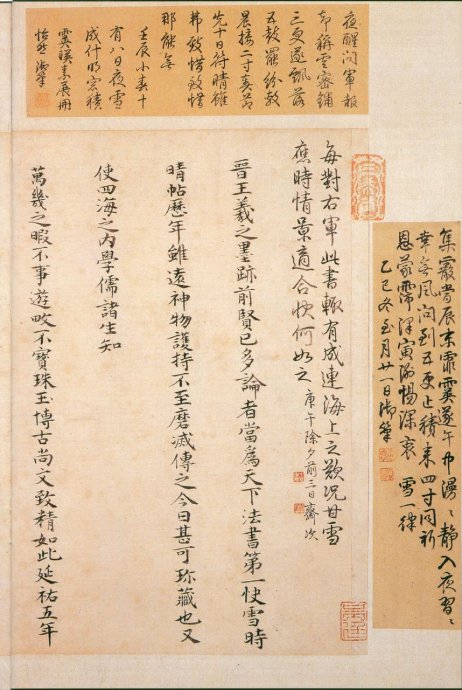 集霰當辰末霏霙遂午中漫〻靜入夜習〻
幸無風問到五更止積來四寸同祈
恩蒙霈澤寅惕深衷 雪一律
乙巳冬至月廿一日御筆
夜醒問軍報
却稱雲密鋪
三更遂飄落
五鼓罷紛敷
晨接二寸奏節
先十日符晴雖
弗致惜致惜
那能無
壬辰小春十
有八日夜雪
成什積
霙展冊
怡然御筆
每對右軍此書輒有成連海上之歎況甘雪
應時情景適合快何如之 庚午除夕前三日齋次
晉王羲之墨跡前賢已多論者當為天下法書第一快雪時
晴帖歷年雖遠神物護持不至磨滅傳之今日甚可珎藏也又
使四海之內學儒諸生知
萬幾之暇不事遊畋不寶珠玉博古尚文致精如此延祐五年